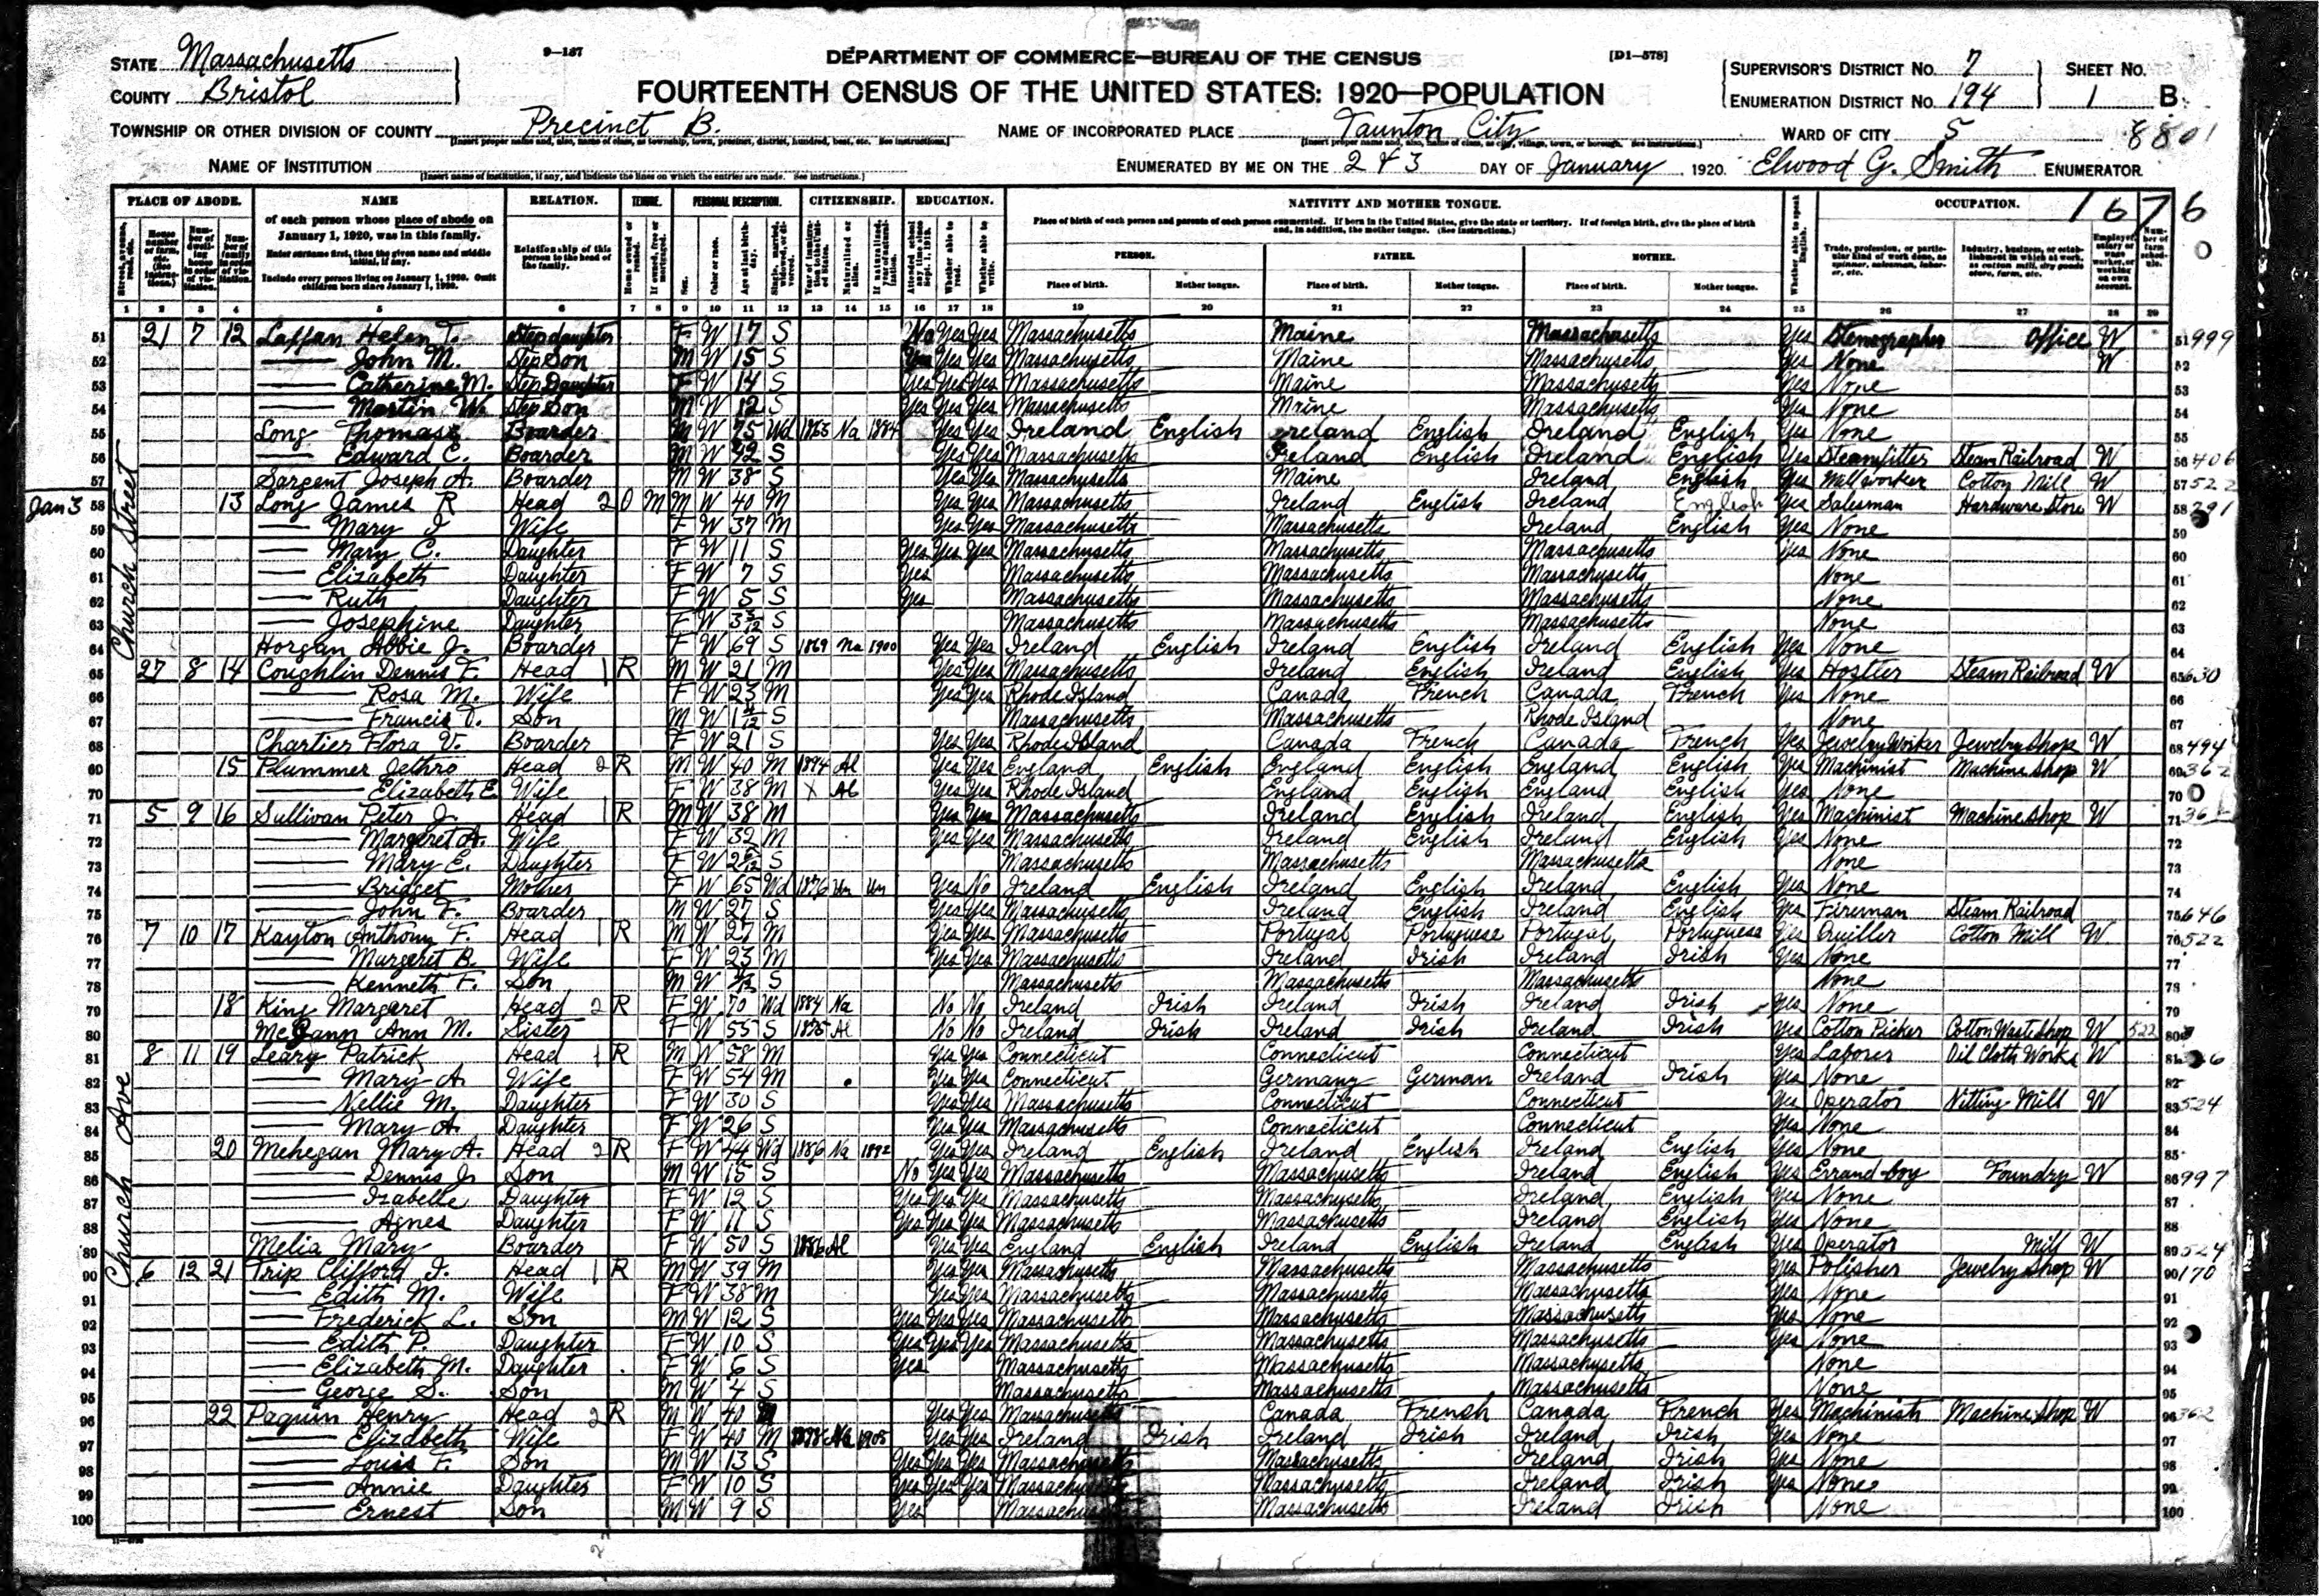 9-137
DEPARTMENT OF COMMERCE—BUREAU OF THE CENSUS
[D1-578]
STATE Massachusetts
COUNTY Bristol
FOURTEENTH CENSUS OF THE UNITED STATES: 1920—POPULATION
SUPERVISOR'S DISTRICT No. 7
ENUMERATION DISTRICT No. 194
SHEET No. 1 B
8801
TOWNSHIP OR OTHER DIVISION OF COUNTY Precinct B.
NAME OF INCORPORATED PLACE Taunton City
WARD OF CITY 5
NAME OF INSTITUTION
[Insert name of institution, if any, and indicate the lines on which the entries are made. See instructions.]
ENUMERATED BY ME ON THE 2 & 3 DAY OF January, 1920. Elwood G. Smith ENUMERATOR
1676
PLACE OF ABODE. NAME RELATION. TENURE. PERSONAL DESCRIPTION. CITIZENSHIP. EDUCATION. NATIVITY AND MOTHER TONGUE. OCCUPATION.
of each person whose place of abode on January 1, 1920, was in this family.
Enter surname first, then the given name and middle initial, if any.
Include every person living on January 1, 1920. Omit children born since January 1, 1920.
Relationship of this person to the head of the family.
Place of birth of each person and parents of each person enumerated. If born in the United States, give the state or territory. If of foreign birth, give the place of birth and, in addition, the mother tongue. (See instructions.)
PERSON. FATHER. MOTHER.
Place of birth. Mother tongue. Place of birth. Mother tongue. Place of birth. Mother tongue.
1 2 3 4 5 6 7 8 9 10 11 12 13 14 15 16 17 18 19 20 21 22 23 24 25 26 27 28 29
Church Street
51 21 7 12 Laffan Helen T. Step daughter F W 17 S No Yes Yes Massachusetts Maine Massachusetts Yes Stenographer Office W 51 999
52 John M. Step Son M W 15 S Yes Yes Massachusetts Maine Massachusetts Yes None W 52
53 Catherine M. Step Daughter F W 14 S Yes Yes Yes Massachusetts Maine Massachusetts Yes None 53
54 Martin W. Step Son M W 12 S Yes Yes Yes Massachusetts Maine Massachusetts Yes None 54
55 Long Thomas Boarder M W 75 Wd Na 1884 Yes Yes Ireland English Ireland English Ireland English Yes None 55
56 Edward C. Boarder M W 42 S Yes Yes Massachusetts Ireland English Ireland English Yes Steamfitter Steam Railroad W 56 406
57 Sargent Joseph A. Boarder M W 38 S Yes Yes Massachusetts Maine Ireland English Yes Mill worker Cotton Mill W 57 522
Jan 3 58 13 Long James R Head 2 O M M W 40 M Yes Yes Massachusetts Ireland English Ireland English Yes Salesman Hardware Store W 58
59 Mary J Wife F W 37 M Yes Yes Massachusetts Massachusetts Ireland English Yes None 59
60 Mary C. Daughter F W 11 S Yes Yes Yes Massachusetts Massachusetts Massachusetts Yes None 60
61 Elizabeth Daughter F W 7 S Yes Massachusetts Massachusetts Massachusetts None 61
62 Ruth Daughter F W 5 S Yes Massachusetts Massachusetts Massachusetts None 62
63 Josephine Daughter F W 3 5/12 S Massachusetts Massachusetts Massachusetts None 63
64 Horgan Abbie J. Boarder F W 69 S 1869 Na 1900 Yes Yes Ireland English Ireland English Ireland English Yes None 64
65 27 8 14 Coughlin Dennis F. Head 1 R M W 21 M Yes Yes Massachusetts Ireland English Ireland English Yes Hostler Steam Railroad W 65 630
66 Rosa M. Wife F W 23 M Yes Yes Rhode Island Canada French Canada French Yes None 66
67 Francis T. Son M W 1 4/12 S Massachusetts Massachusetts Rhode Island None 67
68 Chartier Flora V. Boarder F W 21 S Yes Yes Rhode Island Canada French Canada French Yes Jewelry Worker Jewelry Shop W 68 494
69 15 Plummer Jethro Head 2 R M W 40 M 1894 Al Yes Yes England English England English England English Yes Machinist Machine Shop W 69 362
70 Elizabeth E. Wife F W 38 M X Al Yes Yes Rhode Island England English England English Yes None 70
Church Ave
71 5 9 16 Sullivan Peter J. Head 1 R M W 38 M Yes Yes Massachusetts Ireland English Ireland English Yes Machinist Machine Shop W 71
72 Margaret A. Wife F W 32 M Yes Yes Massachusetts Ireland English Ireland English Yes None 72
73 Mary E. Daughter F W S Massachusetts Massachusetts Massachusetts None 73
74 Bridget Mother F W 65 Wd 1876 Un Un Yes No Ireland English Ireland English Ireland English Yes None 74
75 John F. Boarder M W 27 S Yes Yes Massachusetts Ireland English Ireland English Yes Fireman Steam Railroad 75 646
76 7 10 17 Kayton Anthony F. Head 1 R M W 27 M Yes Yes Massachusetts Portugal Portuguese Portugal Portuguese Yes Quiller Cotton Mill W 76 522
77 Margaret B. Wife F W 23 M Yes Yes Massachusetts Ireland Irish Ireland Irish Yes None 77
78 Kenneth F. Son M W S Massachusetts Massachusetts Massachusetts None 78
79 18 King Margaret Head 2 R F W 70 Wd 1884 Na No No Ireland Irish Ireland Irish Ireland Irish Yes None 79
80 McGann Ann M. Sister F W 55 S 1875 Al No No Ireland Irish Ireland Irish Ireland Irish Yes Cotton Picker Cotton Waste Shop W 522 80
81 8 11 19 Leary Patrick Head 1 R M W 58 M Yes Yes Connecticut Connecticut Connecticut Yes Laborer Oil Cloth Works W 81
82 Mary A. Wife F W 54 M Yes Yes Connecticut Germany German Ireland Irish Yes None 82
83 Nellie M. Daughter F W 30 S Yes Yes Massachusetts Connecticut Connecticut Yes Operator Nitting Mill W 83 524
84 Mary A. Daughter F W 26 S Yes Yes Massachusetts Connecticut Connecticut Yes None 84
85 20 Mehegan Mary A. Head 2 R F W 44 Wd 1886 Na 1892 Yes Yes Ireland English Ireland English Ireland English Yes None 85
86 Dennis J. Son M W 15 S No Yes Yes Massachusetts Massachusetts Ireland English Yes Errand boy Foundry W 86 997
87 Izabelle Daughter F W 12 S Yes Yes Yes Massachusetts Massachusetts Ireland English Yes None 87
88 Agnes Daughter F W 11 S Yes Yes Yes Massachusetts Massachusetts Ireland English Yes None 88
89 Melia Mary Boarder F W 50 S 1886 Al Yes Yes England English Ireland English Ireland English Yes Operator Mill W 89 524
90 6 12 21 Trip Clifford I. Head 1 R M W 39 M Yes Yes Massachusetts Massachusetts Massachusetts Yes Polisher Jewelry Shop W 90 170
91 Edith M. Wife F W 38 M Yes Yes Massachusetts Massachusetts Massachusetts Yes None 91
92 Frederick L. Son M W 12 S Yes Yes Yes Massachusetts Massachusetts Massachusetts Yes None 92
93 Edith P. Daughter F W 10 S Yes Yes Yes Massachusetts Massachusetts Massachusetts Yes None 93
94 Elizabeth M. Daughter F W 6 S Yes Massachusetts Massachusetts Massachusetts None 94
95 George S. Son M W 4 S Massachusetts Massachusetts Massachusetts None 95
96 22 Paquin Henry Head 2 R M W 40 M Yes Yes Massachusetts Canada French Canada French Yes Machinist Machine Shop W 96 362
97 Elizabeth Wife F W 40 M Na Yes Yes Ireland Irish Ireland Irish Ireland Irish Yes None 97
98 Louis F. Son M W 13 S Yes Yes Yes Massachusetts Massachusetts Ireland Irish Yes None 98
99 Annie Daughter F W 10 S Yes Yes Yes Massachusetts Massachusetts Ireland Irish Yes None 99
100 Ernest Son M W 9 S Yes Massachusetts Massachusetts Ireland Irish None 100